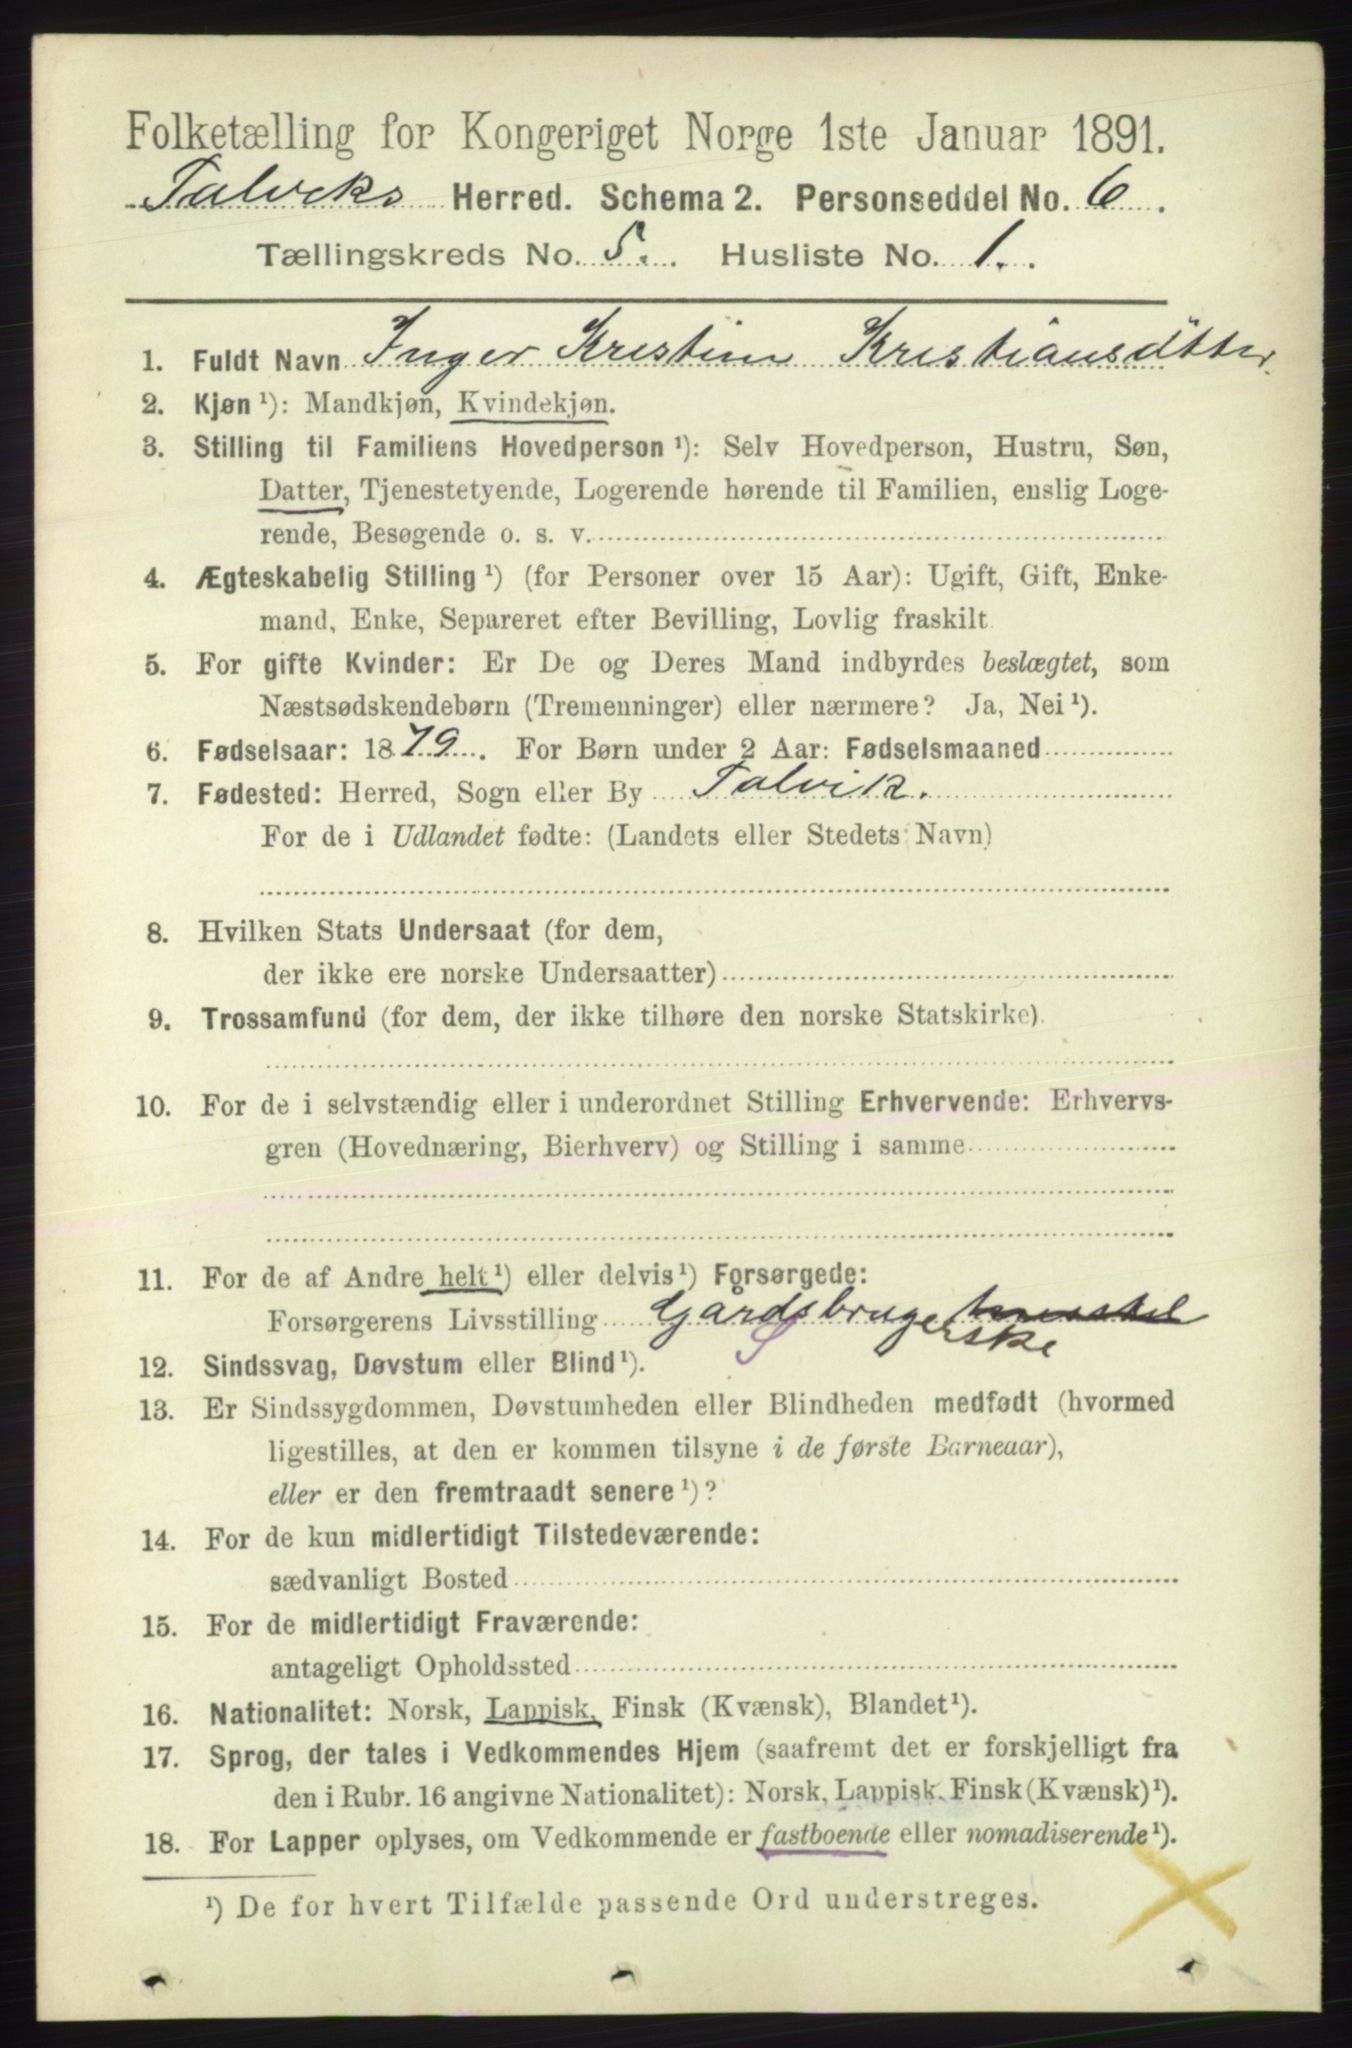 Folketælling for Kongeriget Norge 1ste Januar 1891.
Talviks Herred. Schema 2. Personseddel No. 6.
Tællingskreds No. 5. Husliste No. 1.
1. Fuldt Navn Inger Kristine Kristiansdtter.
2. Kjøn ¹): Mandkjøn, Kvindekjøn.
3. Stilling til Familiens Hovedperson ¹): Selv Hovedperson, Hustru, Søn,
Datter, Tjenestetyende, Logerende hørende til Familien, enslig Loge-
rende, Besøgende o. s. v.
4. Ægteskabelig Stilling ¹) (for Personer over 15 Aar): Ugift, Gift, Enke-
mand, Enke, Separeret efter Bevilling, Lovlig fraskilt
5. For gifte Kvinder: Er De og Deres Mand indbyrdes beslægtet, som
Næstsødskendebørn (Tremenninger) eller nærmere? Ja, Nei ¹).
6. Fødselsaar: 1879. For Børn under 2 Aar: Fødselsmaaned
7. Fødested: Herred, Sogn eller By Talvik.
For de i Udlandet fødte: (Landets eller Stedets Navn)
8. Hvilken Stats Undersaat (for dem,
der ikke ere norske Undersaatter)
9. Trossamfund (for dem, der ikke tilhøre den norske Statskirke)
10. For de i selvstændig eller i underordnet Stilling Erhvervende: Erhvervs-
gren (Hovednæring, Bierhverv) og Stilling i samme
11. For de af Andre helt ¹) eller delvis ¹) Forsørgede:
Forsørgerens Livsstilling Gårdsbrugerske
12. Sindssvag, Døvstum eller Blind ¹). S
13. Er Sindssygdommen, Døvstumheden eller Blindheden medfødt (hvormed
ligestilles, at den er kommen tilsyne i de første Barneaar),
eller er den fremtraadt senere ¹)?
14. For de kun midlertidigt Tilstedeværende:
sædvanligt Bosted
15. For de midlertidigt Fraværende:
antageligt Opholdssted
16. Nationalitet: Norsk, Lappisk, Finsk (Kvænsk), Blandet ¹).
17. Sprog, der tales i Vedkommendes Hjem (saafremt det er forskjelligt fra
den i Rubr. 16 angivne Nationalitet): Norsk, Lappisk, Finsk (Kvænsk) ¹).
18. For Lapper oplyses, om Vedkommende er fastboende eller nomadiserende ¹).
¹) De for hvert Tilfælde passende Ord understreges.